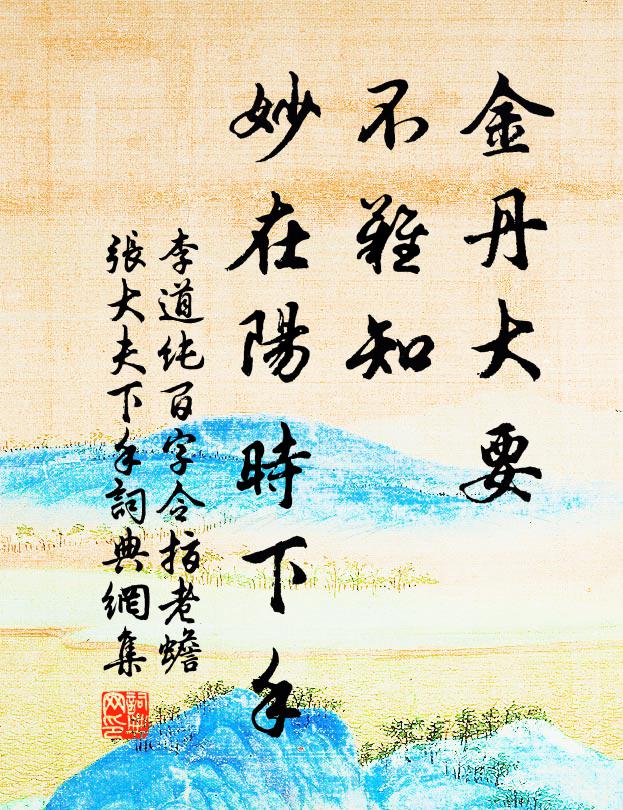 金丹大要
不難知
妙在陽時下手
李道純百字令指老蟾
張大夫下手詞典網集